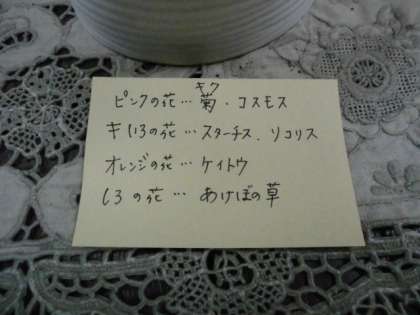 キク
ピンクの花…菊・コスモス
キいろの花…スターチス、ソリコリス
オレンジの花…ケイトウ
しろの花…あけぼの草